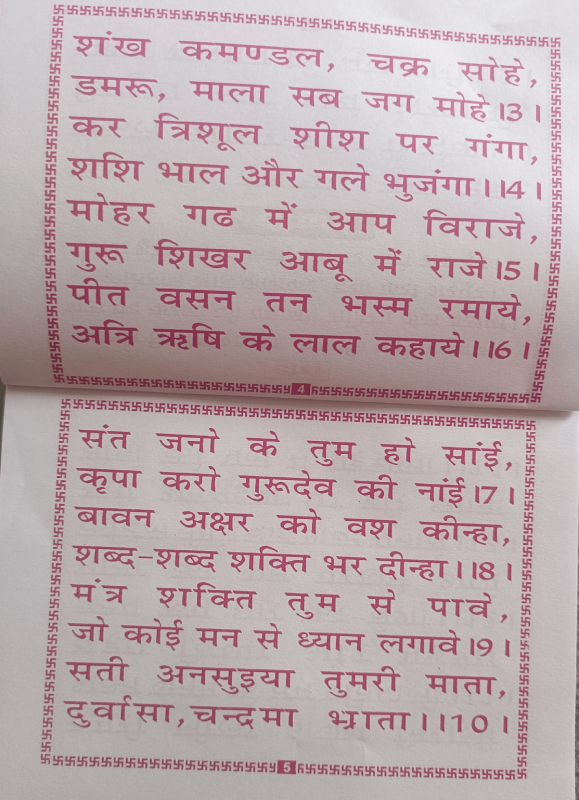 शंख कमण्डल, चक्र सोहे,
डमरू, माला सब जग मोहे।3।
कर त्रिशूल शीश पर गंगा,
शशि भाल और गले भुजंगा।।4।
मोहर गढ में आप विराजे,
गुरू शिखर आबू में राजे।5।
पीत वसन तन भस्म रमाये,
अत्रि ऋषि के लाल कहाये।।6।
4
संत जनो के तुम हो सांई,
कृपा करो गुरूदेव की नांई।7।
बावन अक्षर को वश कीन्हा,
शब्द-शब्द शक्ति भर दीन्हा।।8।
मंत्र शक्ति तुम से पावे,
जो कोई मन से ध्यान लगावे।9।
सती अनसुइया तुमरी माता,
दुर्वासा, चन्द्रमा भ्राता।।10।
5